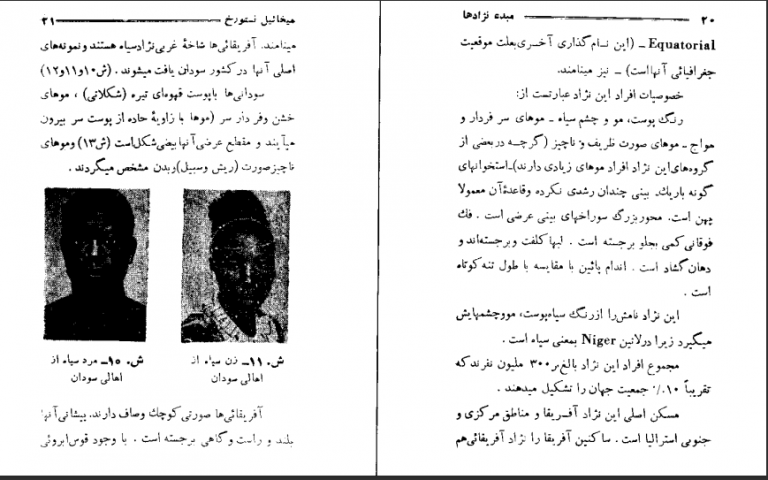 ۲۰ مبدء نژادها
Equatorial ـ (این نام گذاری آخری بعلت موقعیت
جغرافیائی آنها است) ـ نیز مینامند.
خصوصیات افراد این نژاد عبارتست از:
رنگ پوست، مو و چشم سیاه ـ موهای سر فردار و
مواج ـ موهای صورت ظریف و ناچیز (گرچه در بعضی از
گروه‌های این نژاد افراد موهای زیادی دارند)ـ استخوانهای
گونه باریك. بینی چندان رشدی نکرده و قاعدهٔ آن معمولا
پهن است. محور بزرگ سوراخهای بینی عرضی است . فك
فوقانی کمی بجلو برجسته است . لبها کلفت و برجسته‌اند و
دهان گشاد است . اندام پائین با مقایسه با طول تنه کوتاه
است .
این نژاد نامش را از رنگ سیاه پوست، مو و چشمهایش
میگیرد زیرا در لاتین Niger بمعنی سیاه است .
مجموع افراد این نژاد بالغ بر ۳۰۰ ملیون نفرند که
تقریباً ۱۰٪ جمعیت جهان را تشکیل میدهند .
مسکن اصلی این نژاد آفریقا و مناطق مرکزی و
جنوبی استرالیا است . ساکنین آفریقا را نژاد آفریقائی هم
میخائیل نستورخ ۲۱
مینامند. آفریقائی‌ها شاخهٔ غربی نژاد سیاه هستند و نمونه‌های
اصلی آنها در کشور سودان یافت میشوند . (ش۱۰و۱۱و۱۲)
سودانی‌ها با پوست قهوه‌ای تیره (شکلاتی) ، موهای
خشن و فردار سر (موها با زاویهٔ حاده از پوست سر بیرون
میآیند و مقطع عرضی آنها بیضی شکل است (ش۱۳) و موهای
ناچیز صورت (ریش و سبیل) و بدن مشخص میگردند .
ش. ۱۱ـ زن سیاه از
اهالی سودان
ش. ۱۵ـ مرد سیاه از
اهالی سودان
آفریقائی‌ها صورتی کوچك و صاف دارند. پیشانی آنها
بلند و راست و گاهی برجسته است . با وجود قوس ابروئی